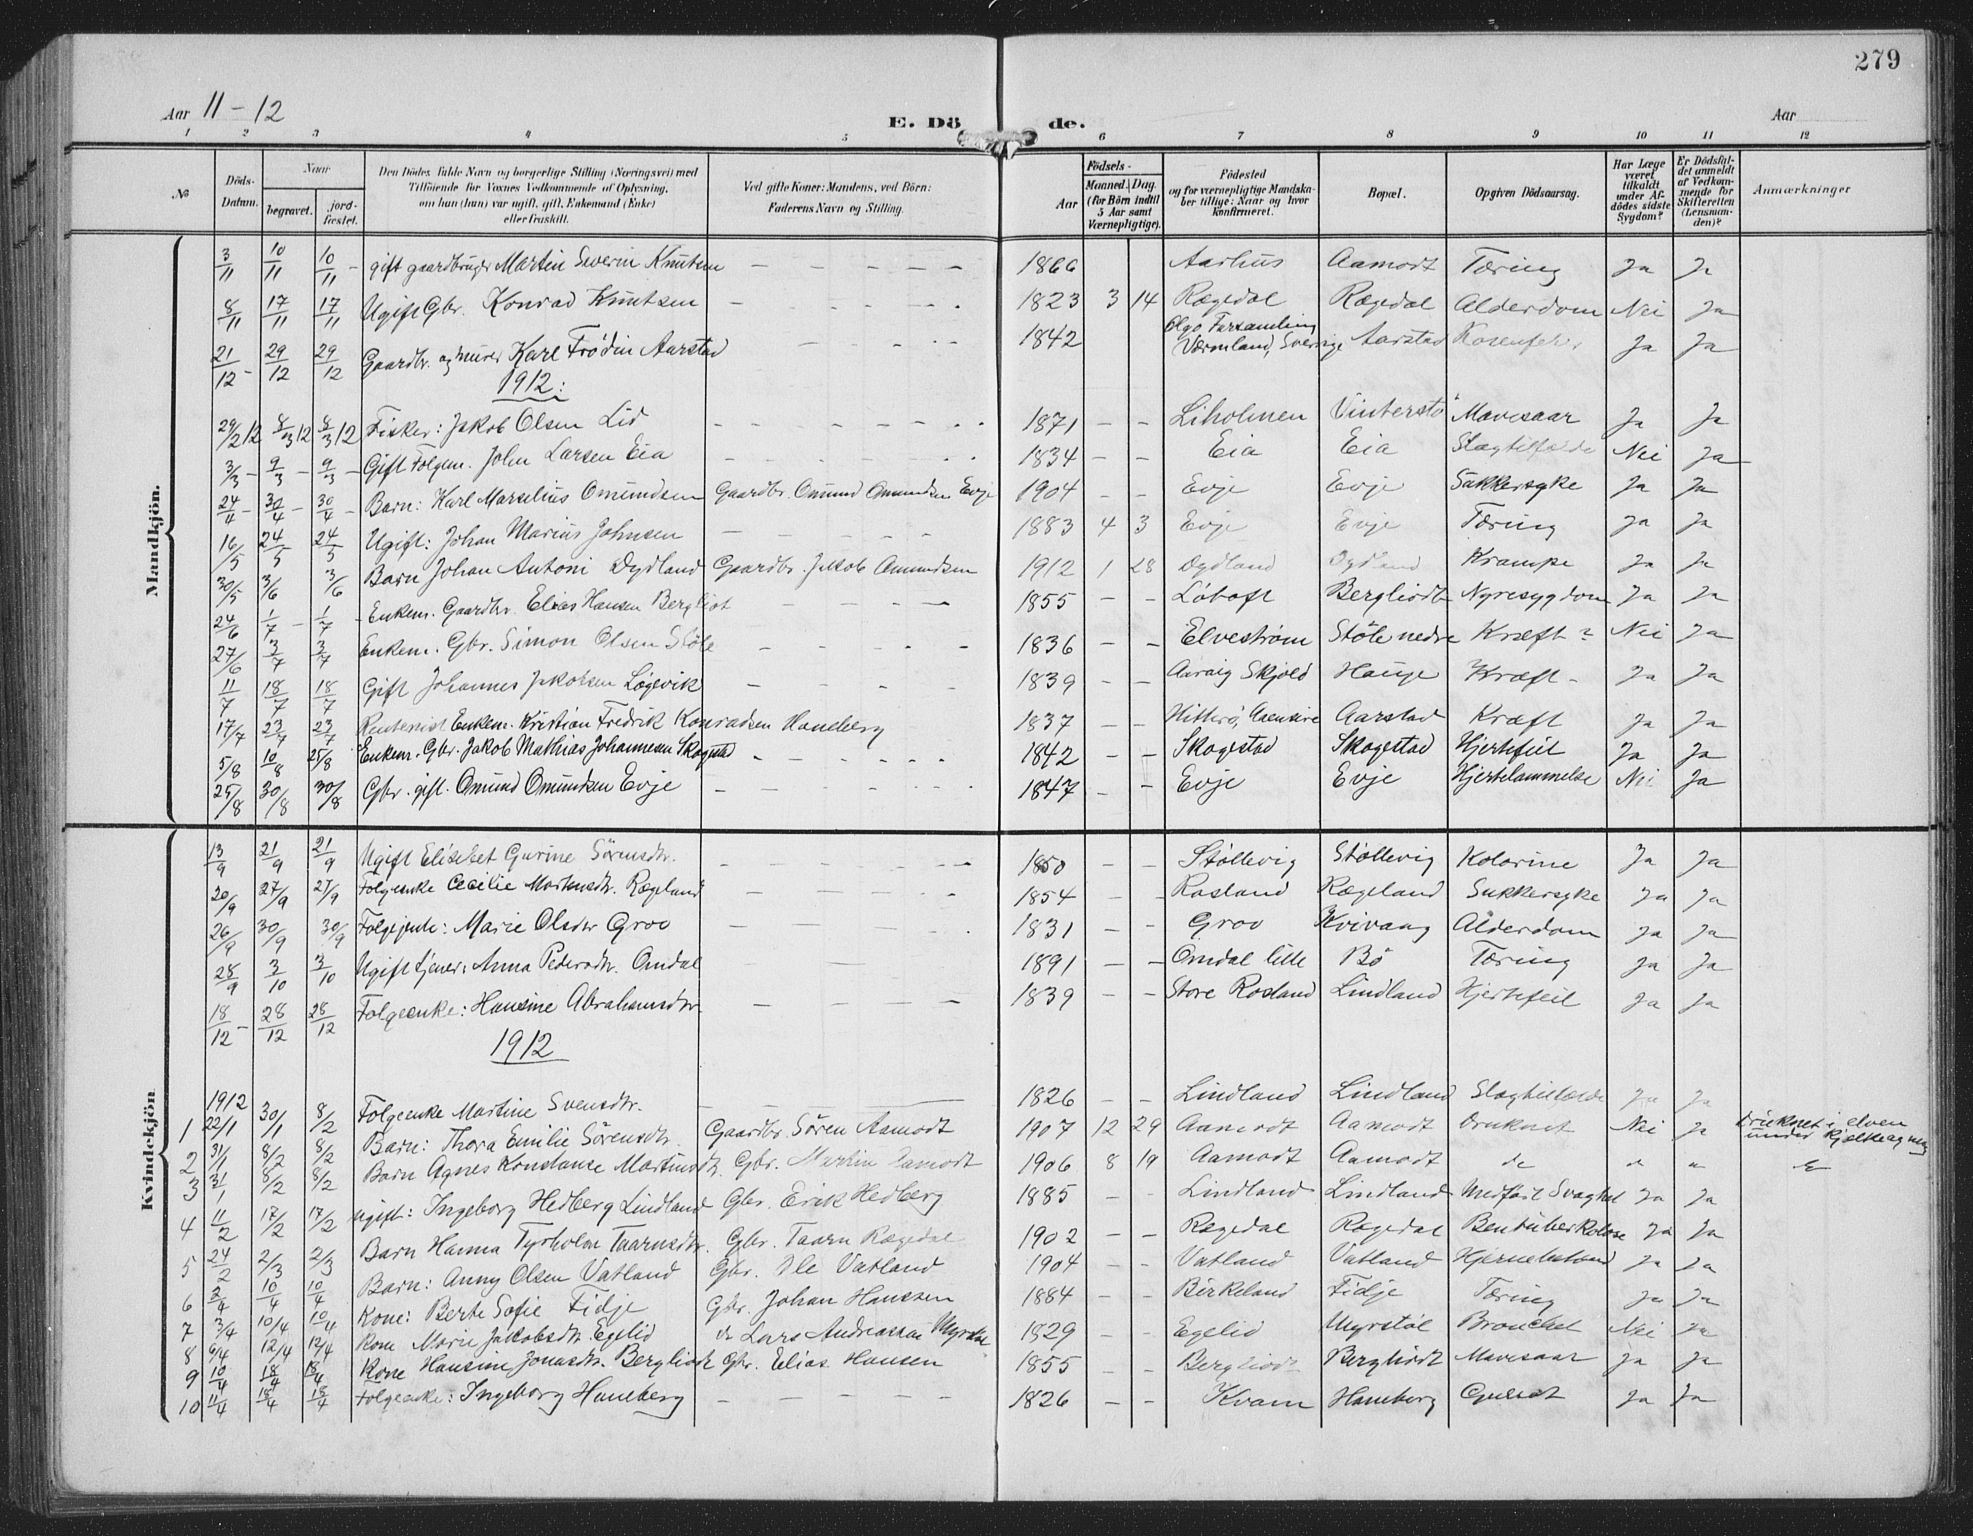 279
Aar 11-12 E. Dö de. Aar
1 2 3 4 5 6 7 8 9 10 11 12
№ Döds-Datum. Naar begravet. jordfæstet. Den Dödes fulde Navn og borgerlige Stilling (Næringsvei) med Tilföiende for Voxnes Vedkommende af Oplysning, om han (hun) var ugift, gift, Enkemand (Enke) eller fraskilt. Ved gifte Koner: Mandens, ved Börn: Faderens Navn og Stilling. Födsels- Aar Maaned. Dag. (for Börn indtil 5 Aar samt Værnepligtige). Födested og for værnepligtige Mandskaber tillige: Naar og hvor konfirmeret. Bopæl. Opgiven Dödsaarsag. Har Læge været tilkaldt under Afdödes sidste Sygdom? Er Dödsfaldet anmeldt af Vedkommende for Skifteretten (Lensmanden)? Anmærkninger
Mandkjön.
3/11 10/11 10/11 - gift gaardbruger Martin Severin Knutsen - - - - - 1866 Aarhus Aamodt Tæring Ja Ja
8/11 17/11 17/11 Ugift Gbr. Konrad Knutsen - - - - 1823 3 14 Rægedal Rægedal Alderdom Nei Ja
21/12 - 29/12 29/12 Gaardbr. og murer Karl Frödin Aarstad - - - - 1842 Værmland, Sverige Aarstad Ja Ja
1912:
29/2 12 8/3 12 8/3 12 Fisker: Jakob Olsen Lid - - - - - 1871 - - Liholmen Vinterstö Mavesaar Ja Ja
3/3 - 9/3 - 9/3 - Gift Folgem. John Larsen Eia - - - - 1834 - - Eia Eia Slagtilfælde Nei Ja
24/4 - 30/4 - 30/4 - Barn: Karl Marselius Omundsen Gaardbr. Omund Omundsen Evje 1904 - - Evje Evje Sukkersyke Ja Ja
16/5 24/5 24/5 Ugift: Johan Marius Johnsen - - - - - 1883 4 3 Evje Evje Tæring Ja Ja
30/5 3/6 3/6 Barn Johan Antoni Dydland Gaardbr. Jakob Omundsen 1912 1 28 Dydland Dydland Krampe Ja Ja
24/6 1/7 - 1/7 - Enkem. Gaardbr. Elias Hansen Bergliot - - - - 1855 - - Lötoft Bergliodt Nyresygdom Ja Ja
27/6 3/7 3/7 Enkem. Gbr. Simon Olsen Stöle - - - - 1836 - - Elveström Stöle nedre Kræft ? Nei Ja
11/7 18/7 18/7 Gift Johannes Jakobsen Løgevik - - - - 1839 - - Aaraig Skjold Hauge Kræft - Ja Ja
17/7 23/7 23/7 Rentenist Enkem. Kristian Fredrik Konradsen Haneberg 1837 - - Hitterö, Aarstad Kræft Ja Ja
5/8 10/8 25/8 Enkem. Gbr. Jakob Mathias Johannesen Skogstad - - - - - 1842 - - Skogestad Skogestad Hjertefeil Ja Ja
25/8 30/8 30/8 Gbr. gift. Omund Omundsen Evje - - - - - 1847 - - Evje Evje Hjertelammelse Nei Ja
Kvindekjön
13/9 21/9 21/9 Ugift Elisebet Gurine Sörensdtr. - - - - - 1850 - - Stöllevig Stöllevig Kolorine Ja Ja
20/9 27/9 27/9 Folgeenke Cecilie Mortensdtr. Rægeland - - - - 1854 - - Rosland Rægeland Sukkersyke Ja Ja
26/9 30/9 30/9 Folgejente: Marie Olsdtr Grov - - - - 1831 - - Grov Kvivaag Alderdom Ja Ja
28/9 3/10 3/10 Ugift tjener: Anna Pedersdtr. Omdal - - - 1891 - - Omdal lille Bö Tæring Ja Ja
18/12 - 28/12 28/12 Folgeenke: Hansine Abrahamsdtr. - - - - - 1839 - - Store Rosland Lindland Hjertefeil Ja Ja
1912
1912
1 22/1 30/1 8/2 Folgeenke Martine Svensdtr. - - 1826 - - Lindland Lindland Slagtilfælde Ja Ja
2 31/1 8/2 8/2 Barn: Thora Emilie Sörensdtr. Gaardbr. Sören Aamodt 1907 12 29 Aamodt Aamodt Druknet Nei Ja Druknet i elven under kjelkeagning
3 31/1 8/2 8/2 Barn Agnes Konstanse Martinsdt. Gbr. Martin Aamodt 1906 8 19 Aamodt Aamodt do
4 11/2 17/2 17/2 ugift: Ingeborg Hedberg Lindland Gbr. Erik Hedberg 1885 - - Lindland Lindland Medfödt Svaghet Ja Ja
5 24/2 2/3 2/3 Barn Hanna Tyrholm Taarnsdtr. Gbr. Taarn Rægedal 1902 - - Rægedal Rægedal Bentuberkolose Ja Ja
6 2/4 10/4 10/4 Barn: Anny Olsen Vatland Gbr. Ole Vatland 1904 Vatland Vatland Ja Ja
7 3/4 10/4 10/4 Kone: Berte Sofie Fidje Gbr. Johan Hanssen 1884 - - Birkeland Fidje Tæring Ja Ja
8 6/4 12/4 12/4 Kone Marie Jakobsdtr. Egelid do Lars Andreassen 1829 - - Egelid Myrstöl Nei Ja
9 10/4 18/4 18/4 Kone Hansine Jonasdtr. Bergliot Gbr. Elias Hansen 1855 - - Bergliodt Bergliodt Mavesaar Ja Ja
10 11/4 18/4 18/4 Folgeenke: Ingeborg Haneberg - - - - - 1826 - - Kvam Haneberg Ja Ja